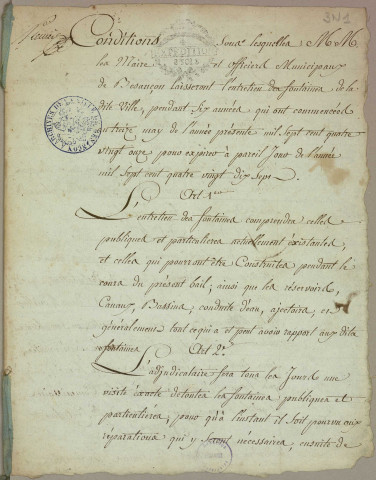 3N1
Conditions Sous lesquelles MM.
les Maire et officiers Municipaux
de Besançon laisseront l'entretien des fontaines de la
dite Ville, pendant six années qui ont commencées
au treize may de l'année presente mil sept cent quatre
vingt onze pour expirer à pareil Jour de l'année
mil sept cent quatre vingt dix sept.
Art. 1er
L'entretien des fontaines comprendra celles
publiques et particulieres actuellement éxistantes,
et celles qui pourront être Construites pendant le
cours du présent bail; ainsi que les reservoirs,
Canaux, Bassins, conduite d'eau, ajectoirs, et
généralement tout ce qui a et peut avoir rapport aux dites
fontaines. Art 2e
L'adjudicataire fera tous les Jours une
visite éxacte de toutes les fontaines publiques et
particulieres, pour qu'à l'instant il soit pourvu aux
réparations qui y seront nécessaires; ensuite de